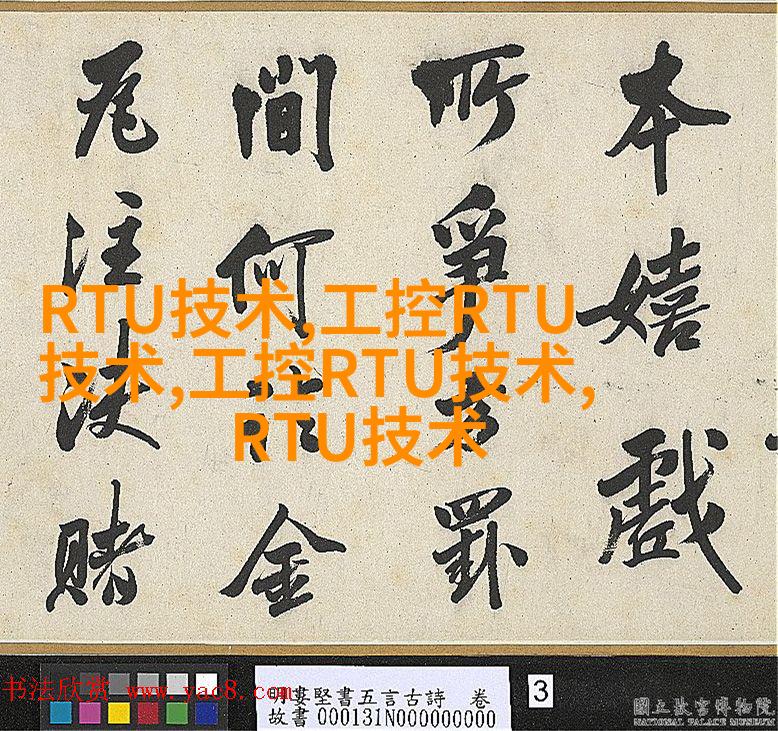 本嬉戲
所爭方罫
間何金
瓦注決賭
RTU技术,工控RTU
技术,工控RTU技术,
RTU技术
书法欣赏 www.yac8.com
明婁堅書五言古詩 卷
故書000131N000000000
3
國立故宮博物院
NATIONAL PALACE MUSEUM